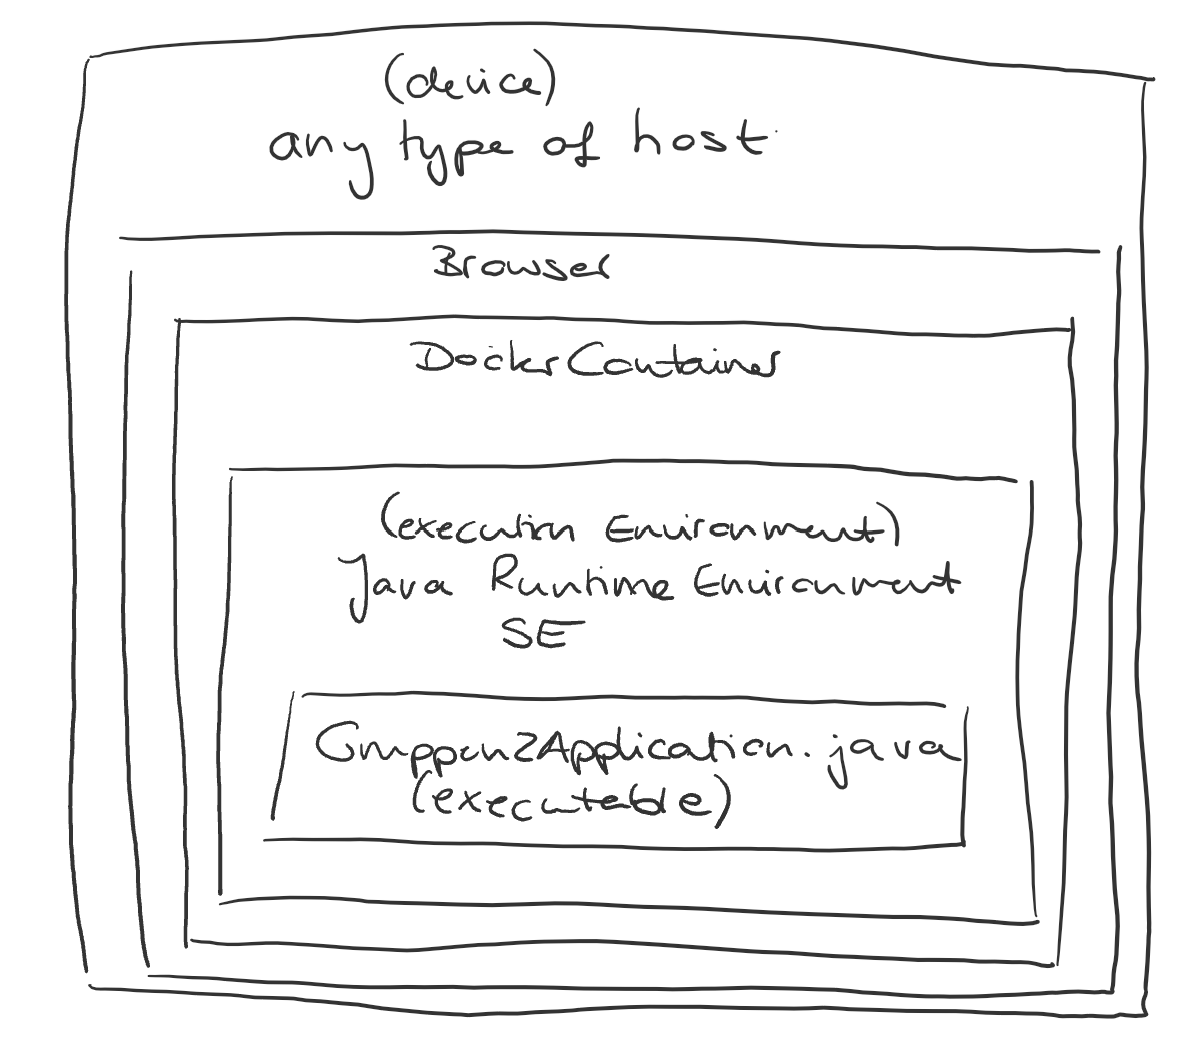 (device)
any type of host
Browser
Docker Container
(execution Environment)
Java Runtime Environment
SE
Gruppen2Application.java
(executable)